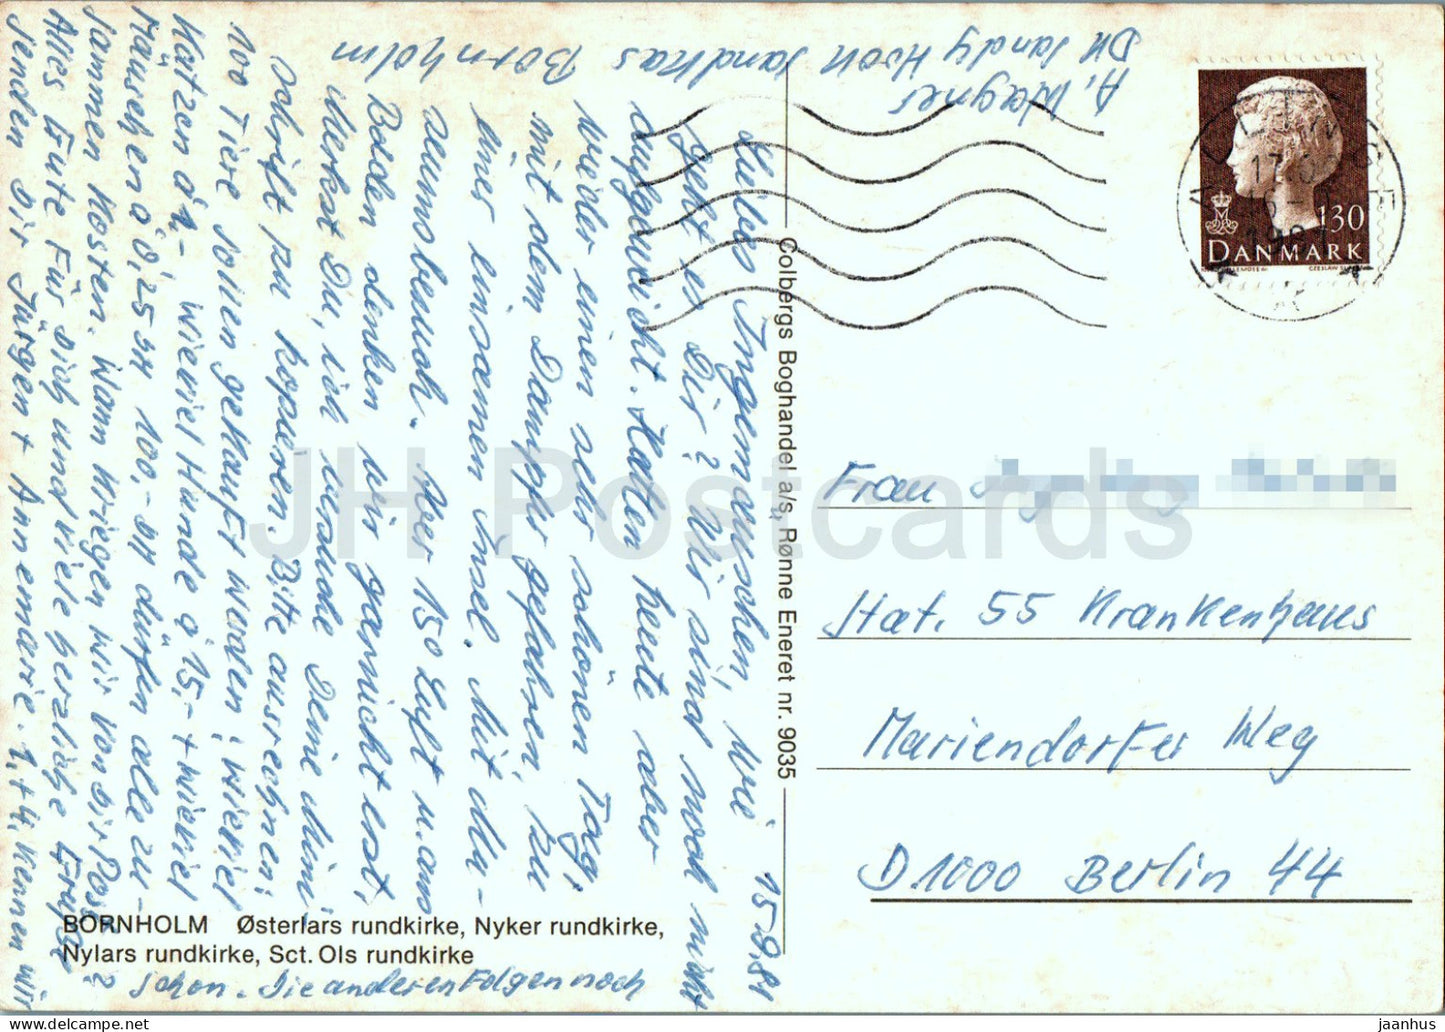 A. Wagner
DK Sandy Hook Sandkas Bornholm
15.9.81
Liebes Ingemäuschen, wie
geht es Dir? Wir sind noch nicht
aufgeweicht. Hatten heute aber
wieder einen sehr schönen Tag,
mit dem Dampfer gefahren, zu
einer einsamen Insel. Mit du-
aunsbeuch. Aber 150 Luft u. am
Boden denken wir garnicht erst.
Merkst Du, ich versuche Deine Mini
Schrift zu kopieren. Bitte ausrechnen:
100 Tiere sollen gekauft werden; wieviel
Katzen á 1,- wieviel Hunde á 15,- + wieviel
Mäuschen á 0,25 DM 100,- DM dürfen alle zu-
sammen kosten. Wann kriegen wir von Dir Post?
Alles Gute für Dich und viele herzliche Grüße
senden Dir Jürgen + Annemarie. 1,+4, kennen wir
schon. Die anderen folgen noch
DANMARK
130
17.09
Colbergs Boghandel a/s, Rønne Eneret nr. 9035
Frau
Stat. 55 Krankenhaus
Mariendorfer Weg
D 1000 Berlin 44
BORNHOLM Østerlars rundkirke, Nyker rundkirke,
Nylars rundkirke, Sct. Ols rundkirke
JH Postcards
delcampe.net
jaanhus